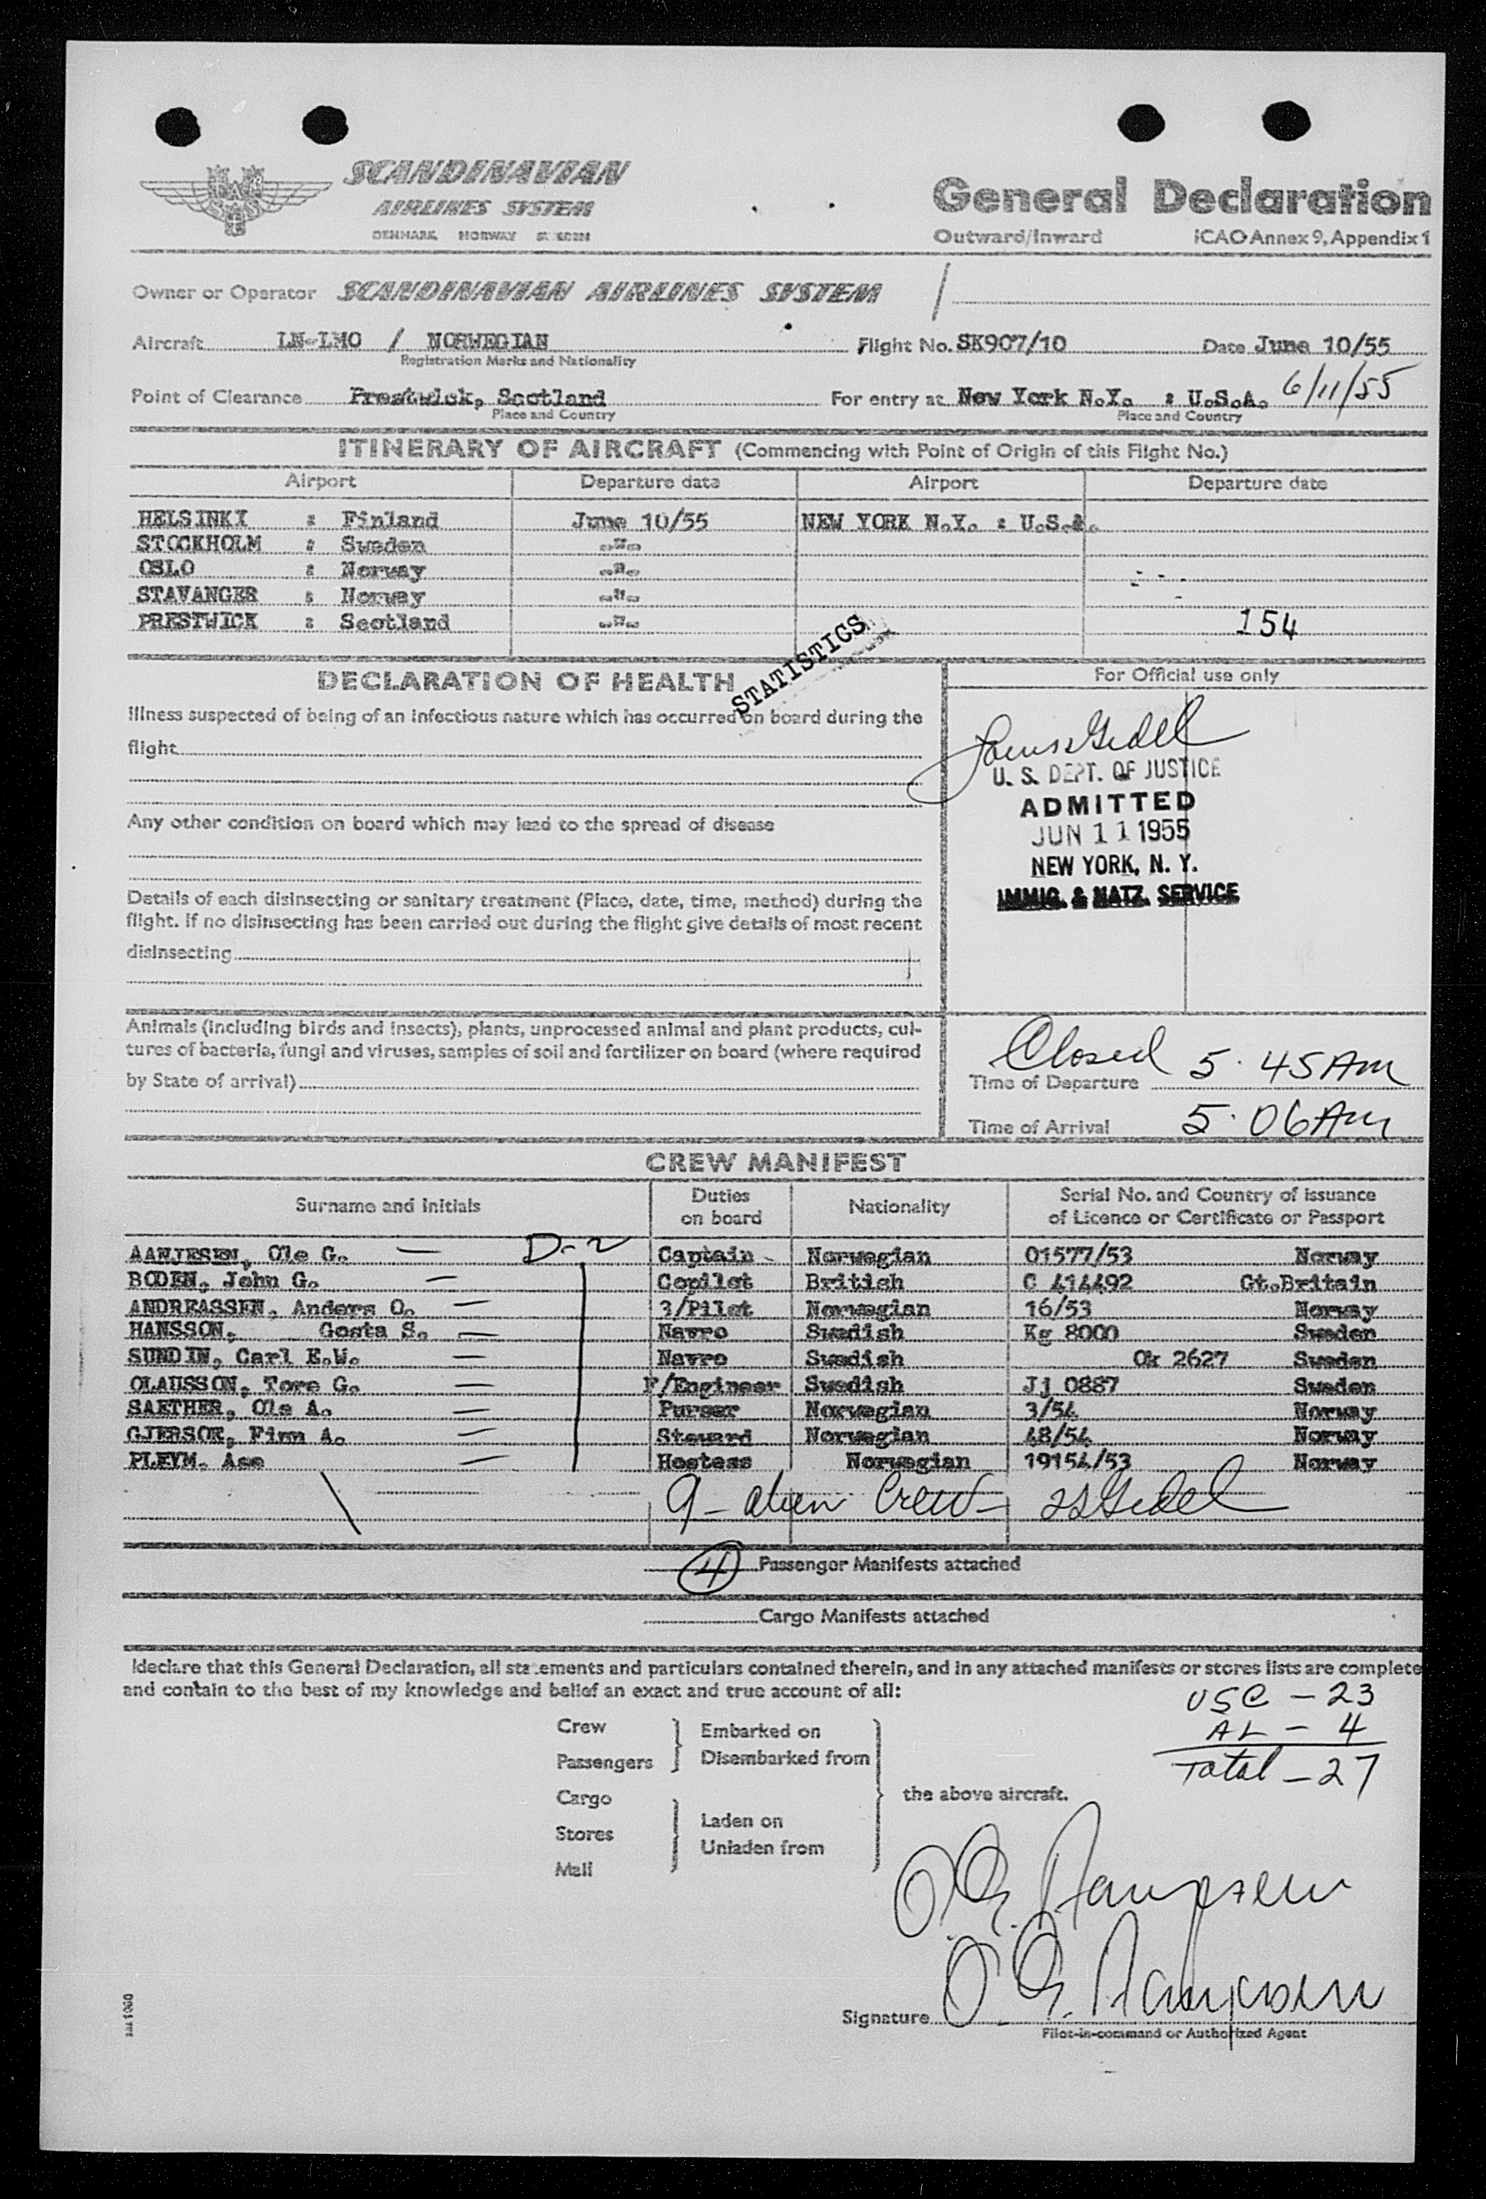 SCANDINAVIAN
AIRLINES SYSTEM
DENMARK NORWAY SWEDEN
General Declaration
Outward/Inward ICAO Annex 9, Appendix 1
Owner or Operator SCANDINAVIAN AIRLINES SYSTEM
Aircraft LN-LMO / NORWEGIAN Flight No. SK907/10 Date June 10/55
Registration Marks and Nationality
Point of Clearance Prestwick, Scotland For entry at New York N.Y. : U.S.A. 6/11/55
Place and Country Place and Country
ITINERARY OF AIRCRAFT (Commencing with Point of Origin of this Flight No.)
Airport Departure date Airport Departure date
HELSINKI : Finland June 10/55 NEW YORK N.Y. : U.S.A.
STOCKHOLM : Sweden -"-
OSLO : Norway -"-
STAVANGER : Norway -"-
PRESTWICK : Scotland -"- 154
STATISTICS
DECLARATION OF HEALTH
Illness suspected of being of an infectious nature which has occurred on board during the
flight
Any other condition on board which may lead to the spread of disease
Details of each disinsecting or sanitary treatment (Place, date, time, method) during the
flight. If no disinsecting has been carried out during the flight give details of most recent
disinsecting
Animals (including birds and insects), plants, unprocessed animal and plant products, cul-
tures of bacteria, fungi and viruses, samples of soil and fertilizer on board (where required
by State of arrival)
For Official use only
U. S. DEPT. OF JUSTICE
ADMITTED
JUN 11 1955
NEW YORK, N. Y.
IMMIG. & NATZ. SERVICE
Closed 5.45 AM
Time of Departure
Time of Arrival 5.06 AM
CREW MANIFEST
Surname and initials Duties on board Nationality Serial No. and Country of issuance of Licence or Certificate or Passport
AANJESEN, Ole G. — D-2 Captain Norwegian 01577/53 Norway
BODEN, John G. — Copilot British C 414492 Gt.Britain
ANDREASSEN, Anders O. — 3/Pilot Norwegian 16/53 Norway
HANSSON, Gosta S. — Navro Swedish Kg 8000 Sweden
SUNDIN, Carl E.W. — Navro Swedish Ok 2627 Sweden
OLAUSSON, Tore G. — F/Engineer Swedish Jj 0887 Sweden
SAETHER, Ole A. — Purser Norwegian 3/54 Norway
GJERSOE, Finn A. — Steward Norwegian 48/54 Norway
PLEYM. Ase — Hostess Norwegian 19154/53 Norway
9 - alien Crew -
4 Passenger Manifests attached
Cargo Manifests attached
I declare that this General Declaration, all statements and particulars contained therein, and in any attached manifests or stores lists are complete
and contain to the best of my knowledge and belief an exact and true account of all:
USC - 23
AL - 4
Total - 27
Crew Embarked on
Passengers Disembarked from
the above aircraft.
Cargo
Stores Laden on
Mail Unladen from
Signature
Pilot-in-command or Authorized Agent